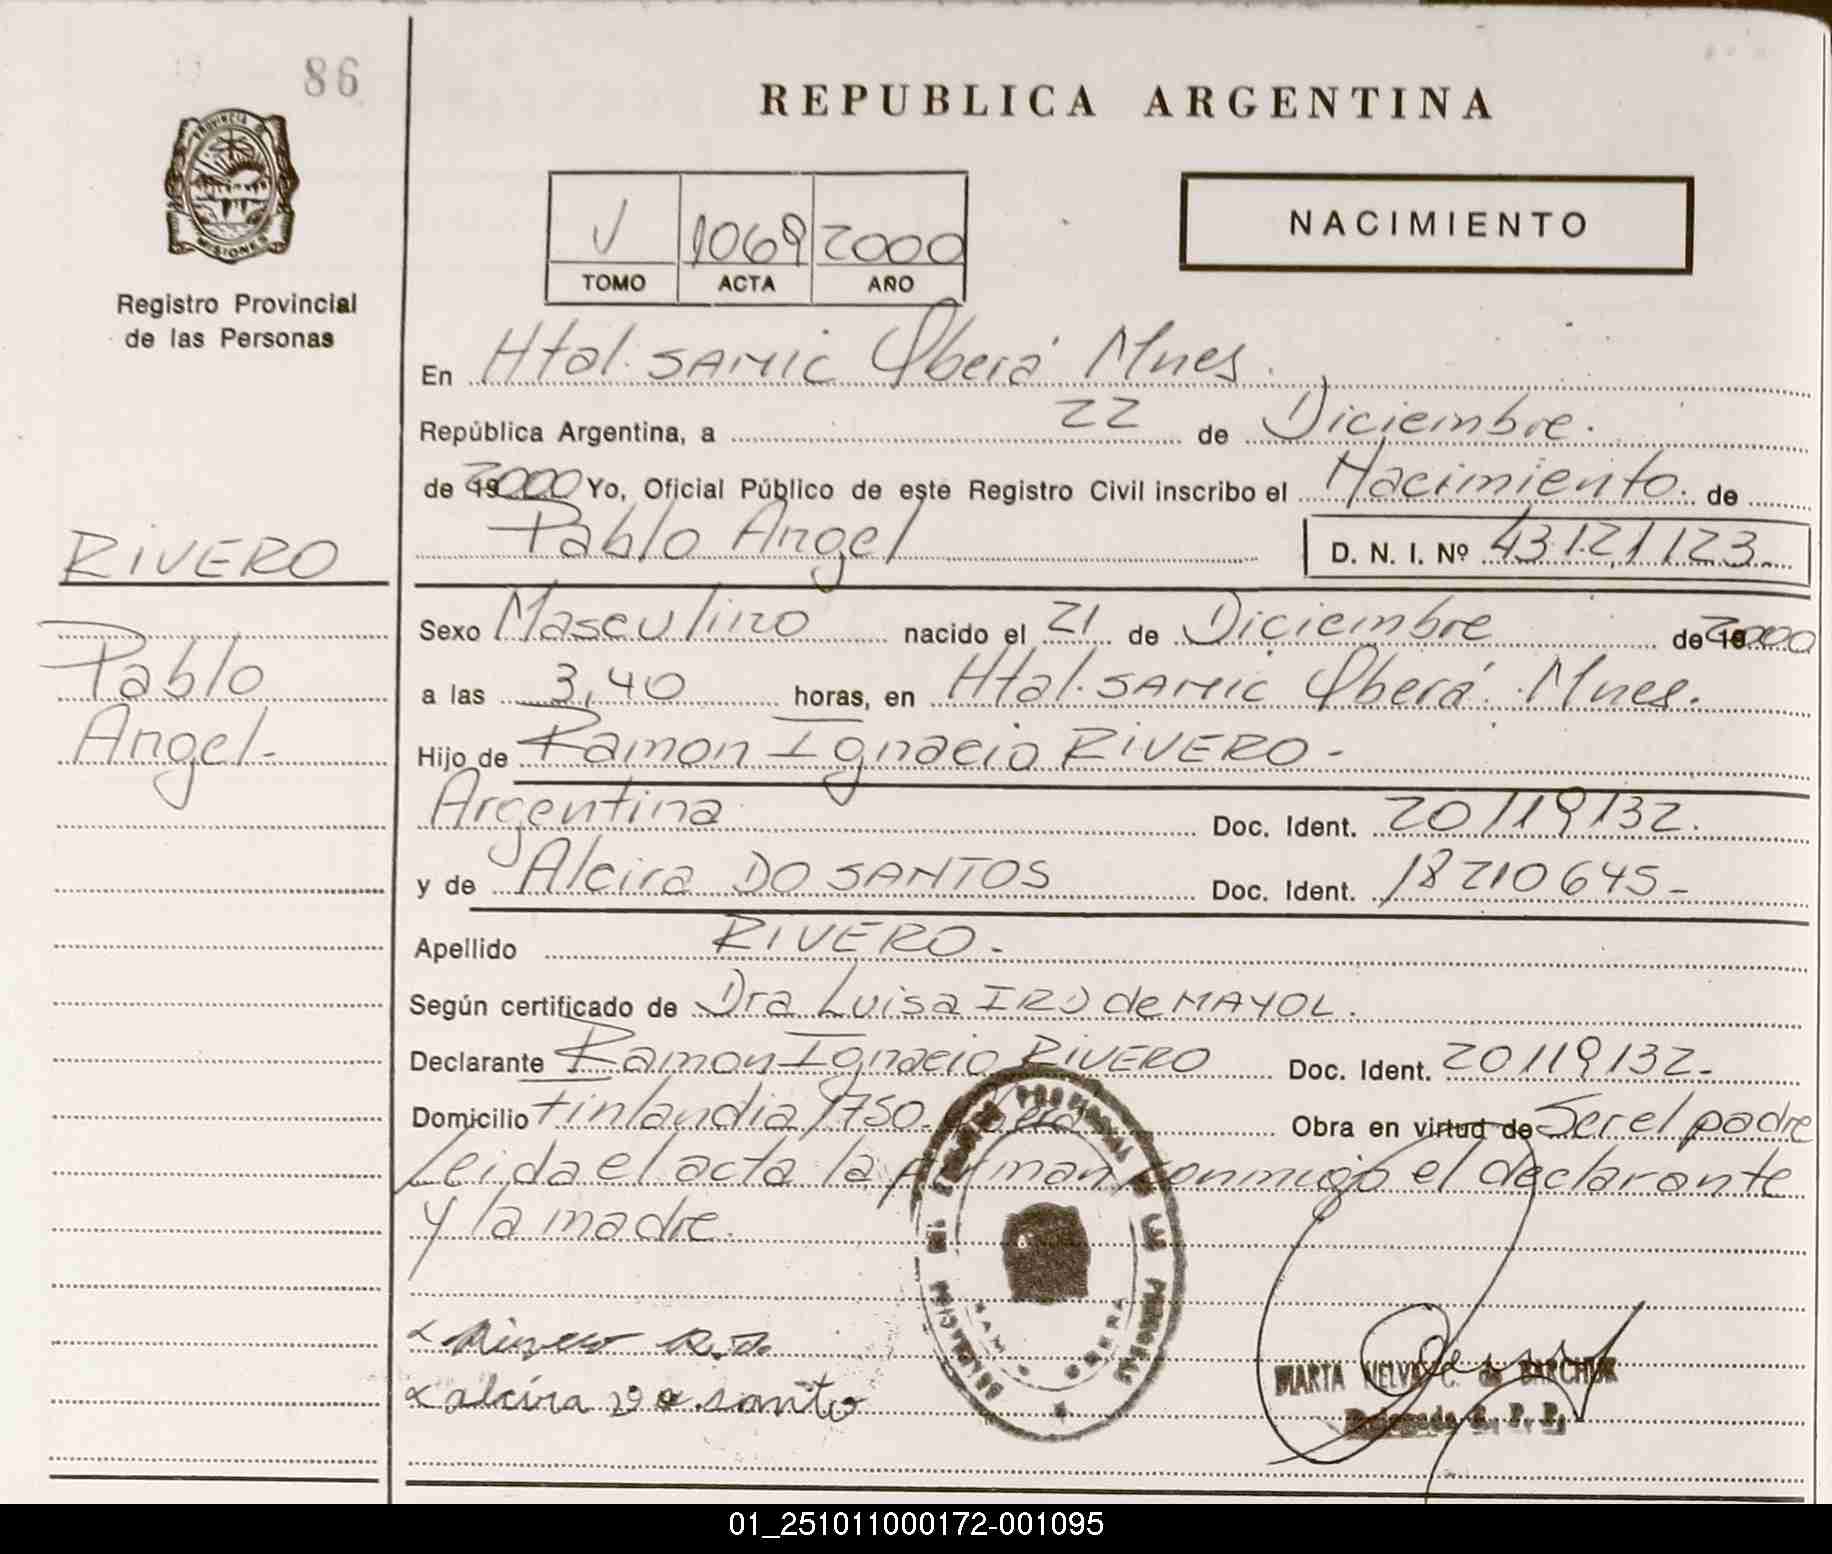 86
PROVINCIA DE
MISIONES
Registro Provincial
de las Personas
RIVERO
Pablo
Angel-
REPUBLICA ARGENTINA
V 1069 2000
TOMO ACTA AÑO
NACIMIENTO
En Htal. SAMIC Oberá Mnes.
República Argentina, a 22 de Diciembre.
de 2000 Yo, Oficial Público de este Registro Civil inscribo el Nacimiento. de
Pablo Angel D. N. I. Nº 43.121.123.
Sexo Masculino nacido el 21 de Diciembre de 2000
a las 3,40 horas, en Htal. SAMIC Oberá Mnes.
Hijo de Ramon Ignacio RIVERO-
Argentina Doc. Ident. 20119132.
y de Alcira DO SANTOS Doc. Ident. 18210645-
Apellido RIVERO-
Según certificado de Dra Luisa de MAYOL.
Declarante Ramon Ignacio RIVERO Doc. Ident. 20119132-
Domicilio Finlandia 1750. Oberá Obra en virtud de Ser el padre
Leida el acta la firman conmigo el declarante
y la madre.
x Rivero R.I.
x alcira do santo
MARTA NELVA C. de
Delegada R. P. P.
01_251011000172-001095